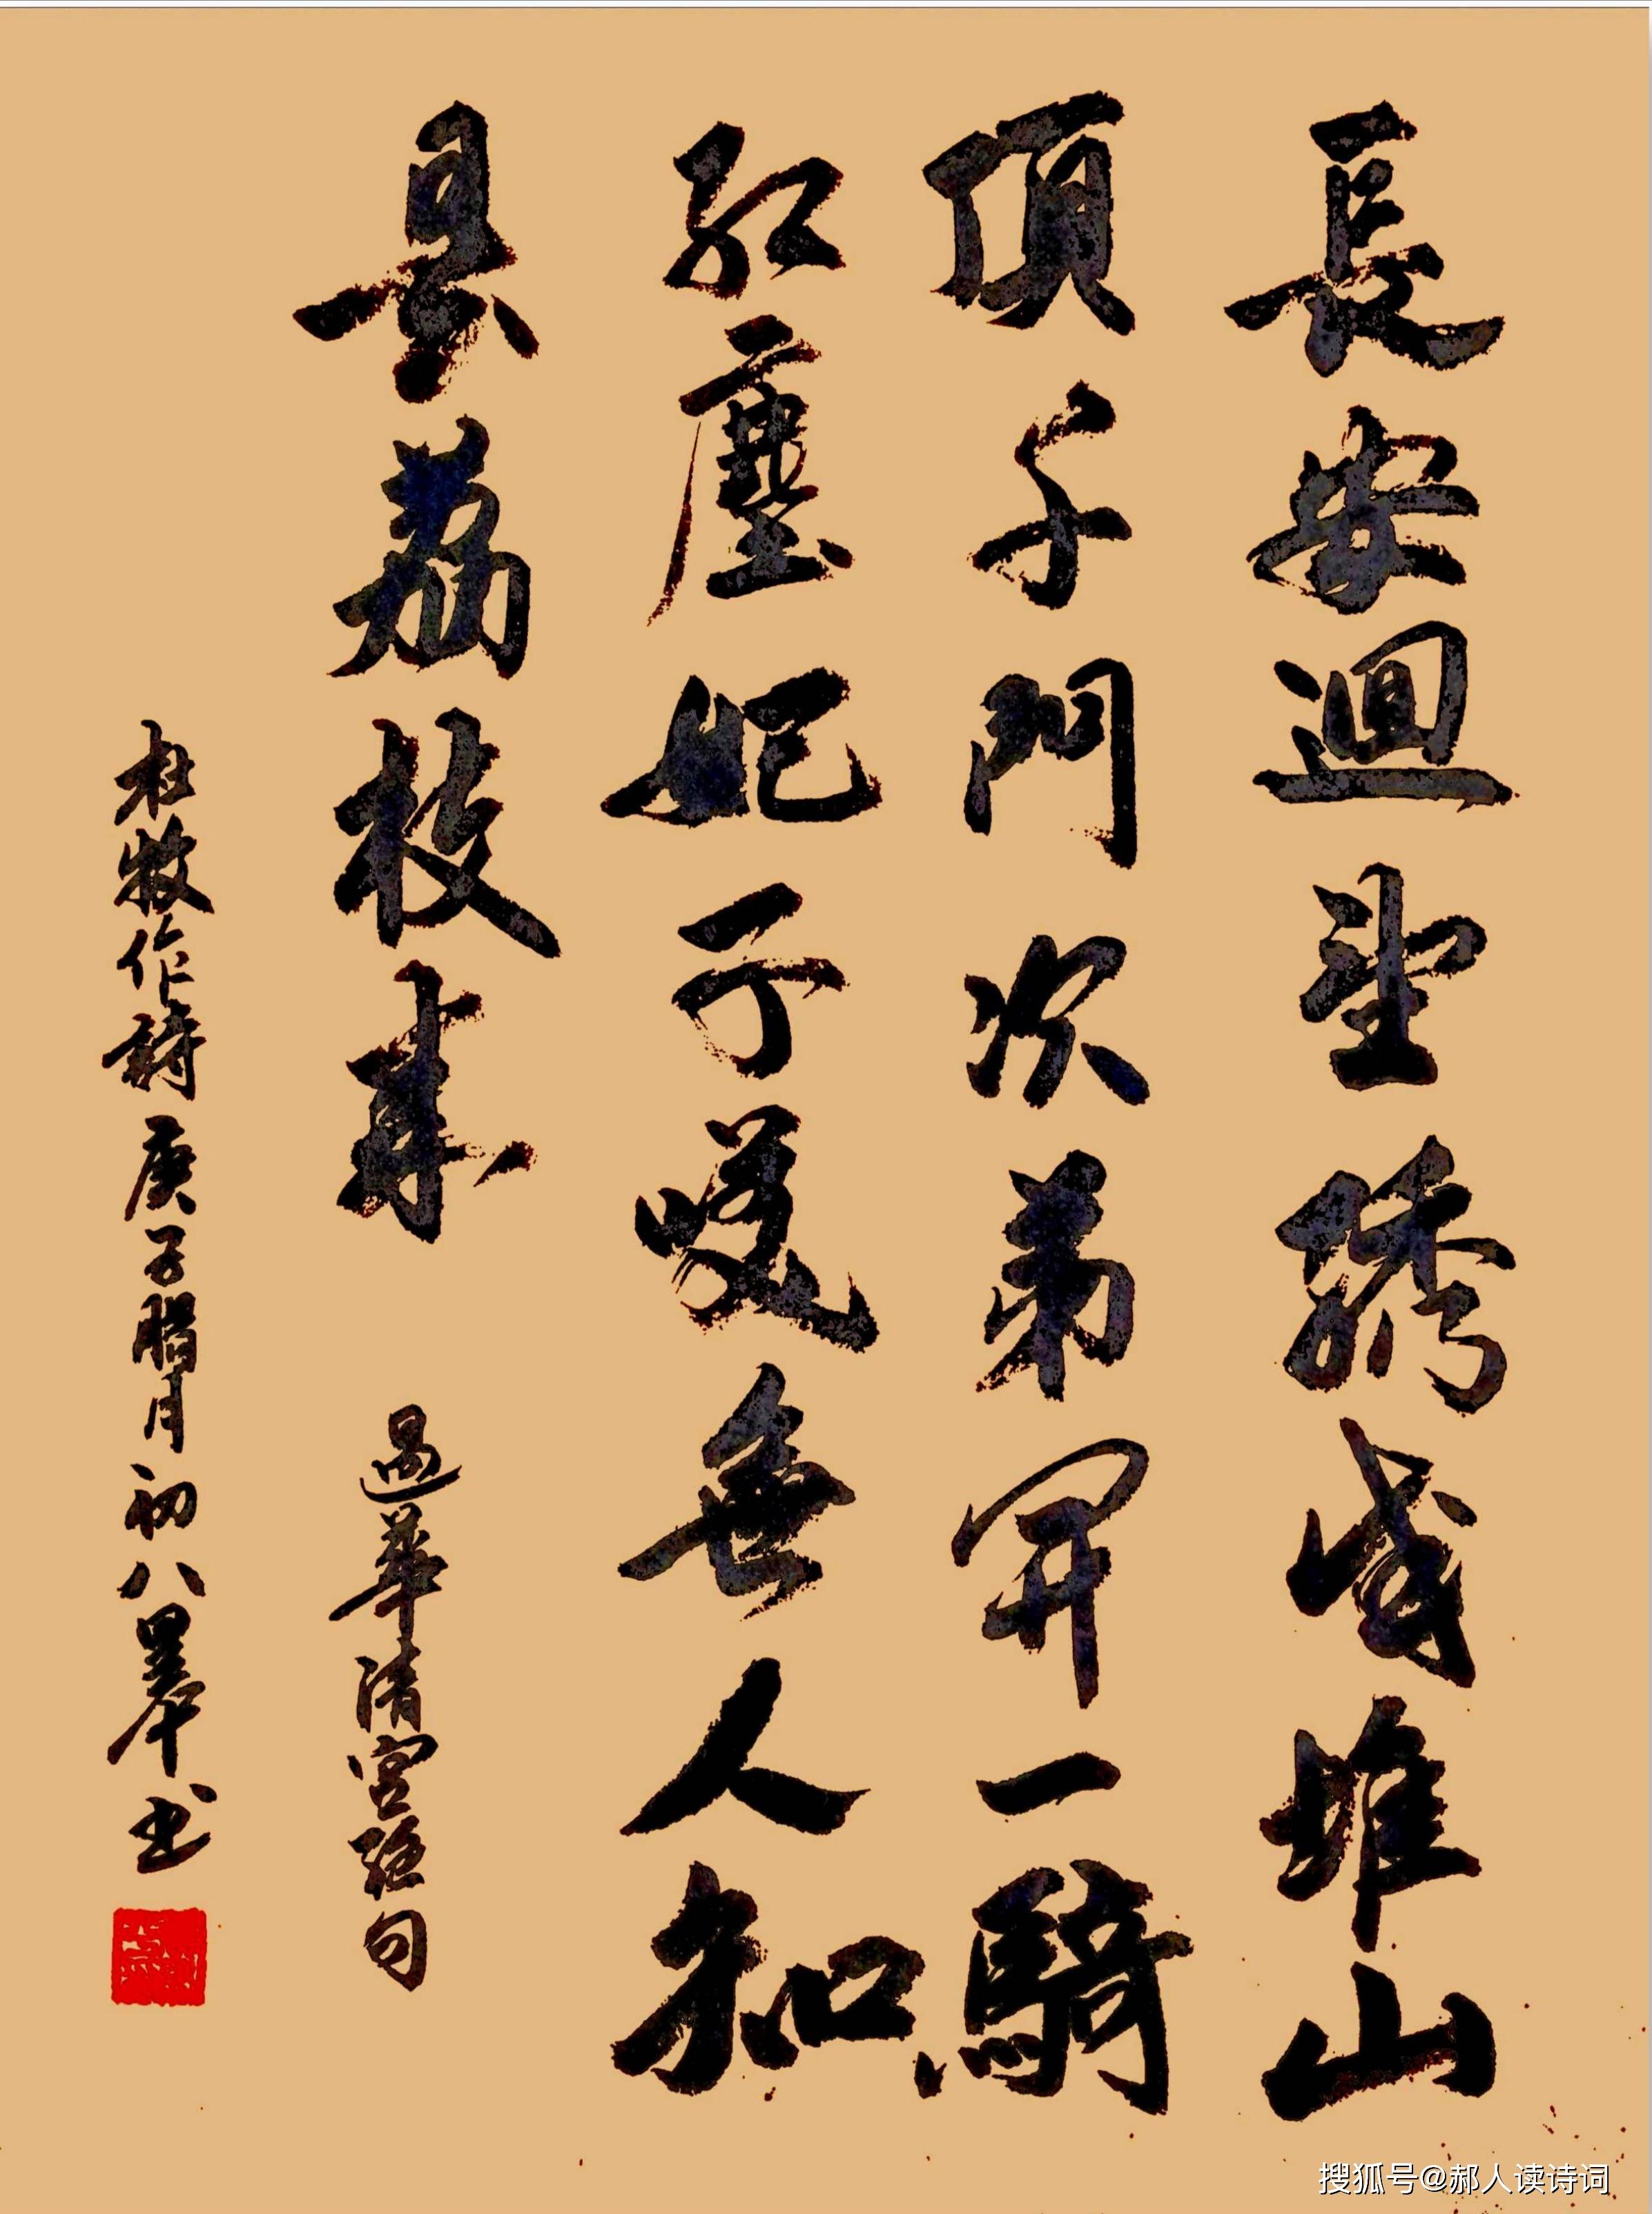 長安迴望綉成堆山
頂千門次弟開一騎
紅塵妃子咲無人知
是荔枝来
過華清宮絕句
杜牧作詩庚子腊月初八书
搜狐号@郝人读诗词